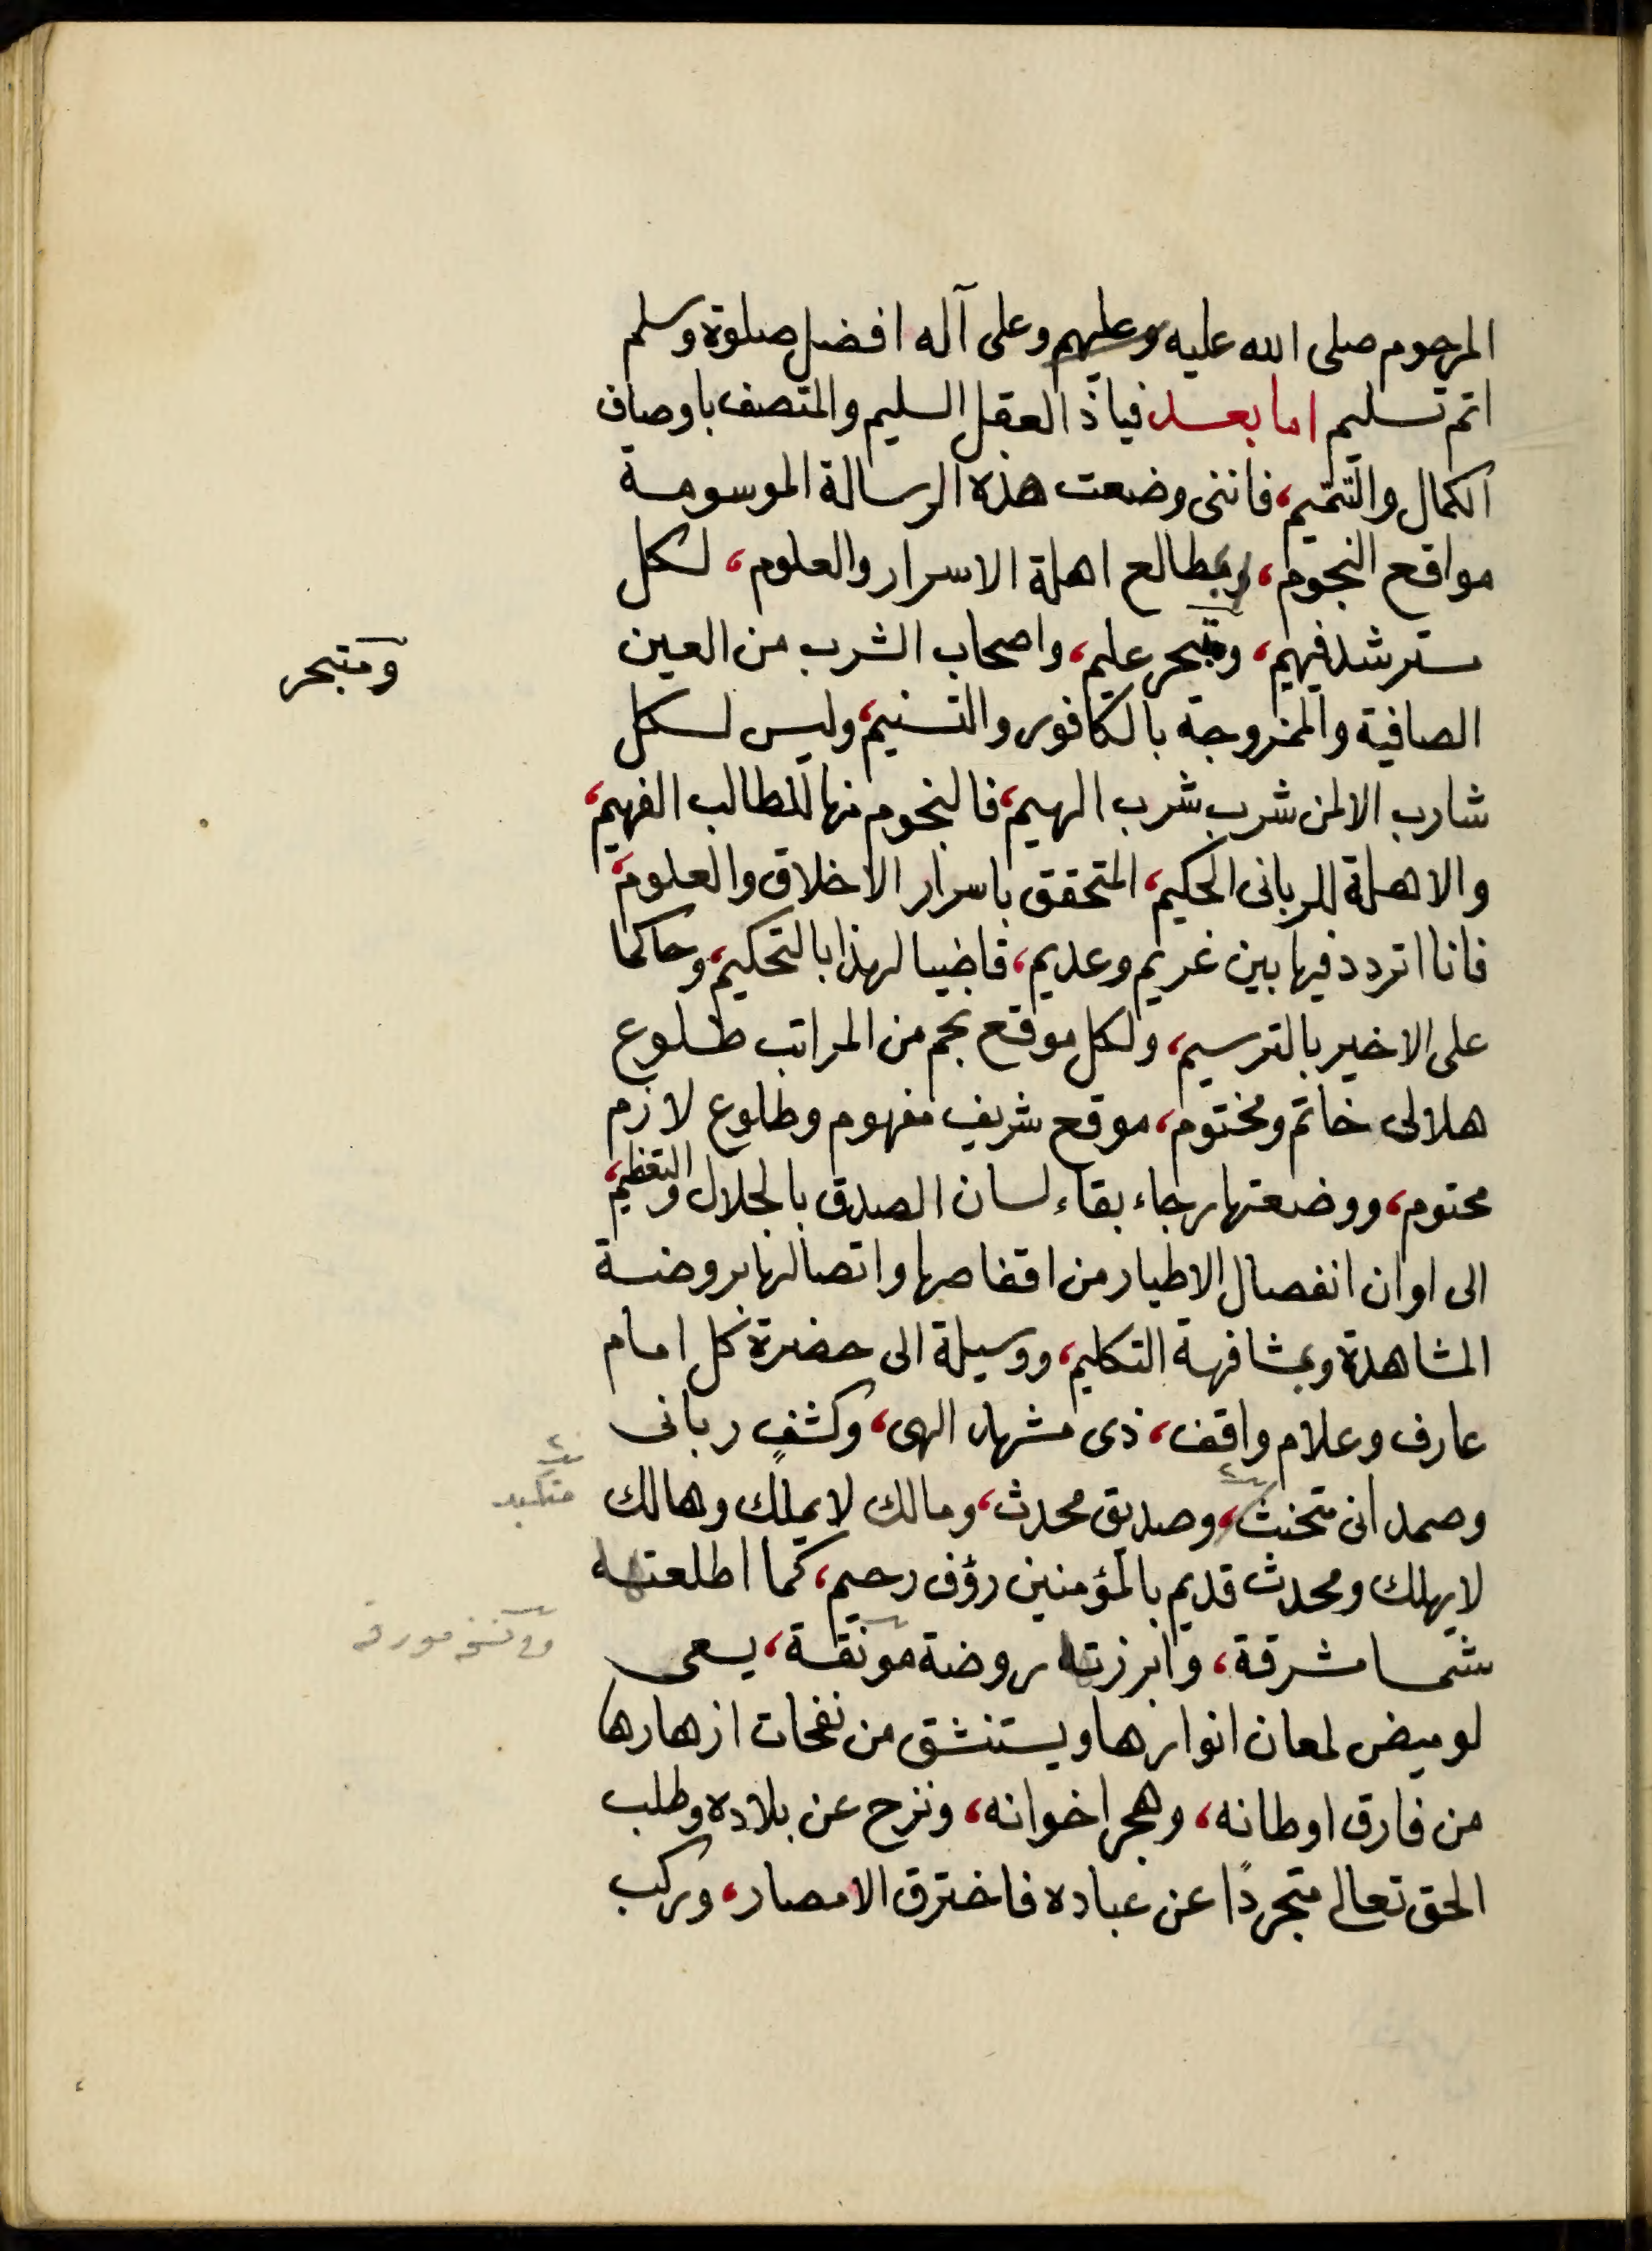 المرحوم صلى الله عليه وعليهم وعلى آله افضل صلوة وسلم
اتم تسليم اما بعد فياذا العقل السليم والمتصف باوصاف
الكمال والتتميم، فاننى وضعت هذه الرسالة الموسومة
مواقع النجوم، ومطالع اهلة الاسرار والعلوم، لكل
مسترشد فهيم، ومتبحر عليم، واصحاب الشرب من العين
ومتبحر
الصافية والممزوجة بالكافور والتسنيم، وليس لكل
شارب الا لمن شرب شرب الهيم، فالنجوم منها للطالب الفهيم،
والاهلة للربانى الحكيم، المتحقق باسرار الاخلاق والعلوم،
فانا اتردد فيها بين غريم وعديم، قاضيا لهذا بالتحكيم، وحاكما
على الاخير بالترسيم، ولكل موقع نجم من المراتب طلوع
هلالى خاتم ومختوم، موقع شريف مفهوم وطلوع لازم
محتوم، ووضعتها رجاء بقاء لسان الصدق بالجلال والتعظيم،
الى اوان انفصال الاطيار من اقفاصها واتصالها بروضة
المشاهدة وبمشافهة التكليم، ووسيلة الى حضرة كل امام
عارف وعلام واقف، ذى مشهد الهى، وكشفٍ ربانى
وصمدانى متخنث، وصديق محدث، ومالك لا يملك وهالك
لايهلك ومحدث قديم بالمؤمنين رؤف رحيم، كما اطلعتها
شمسا مشرقة، وابرزتها روضة مونقة، يسعى
لوميض لمعان انوارها ويستنشق من نفحات ازهارها
من فارق اوطانه، وهجر اخوانه، ونزح عن بلاده وطلب
الحق تعالى متجردًا عن عباده فاخترق الامصار، وركب